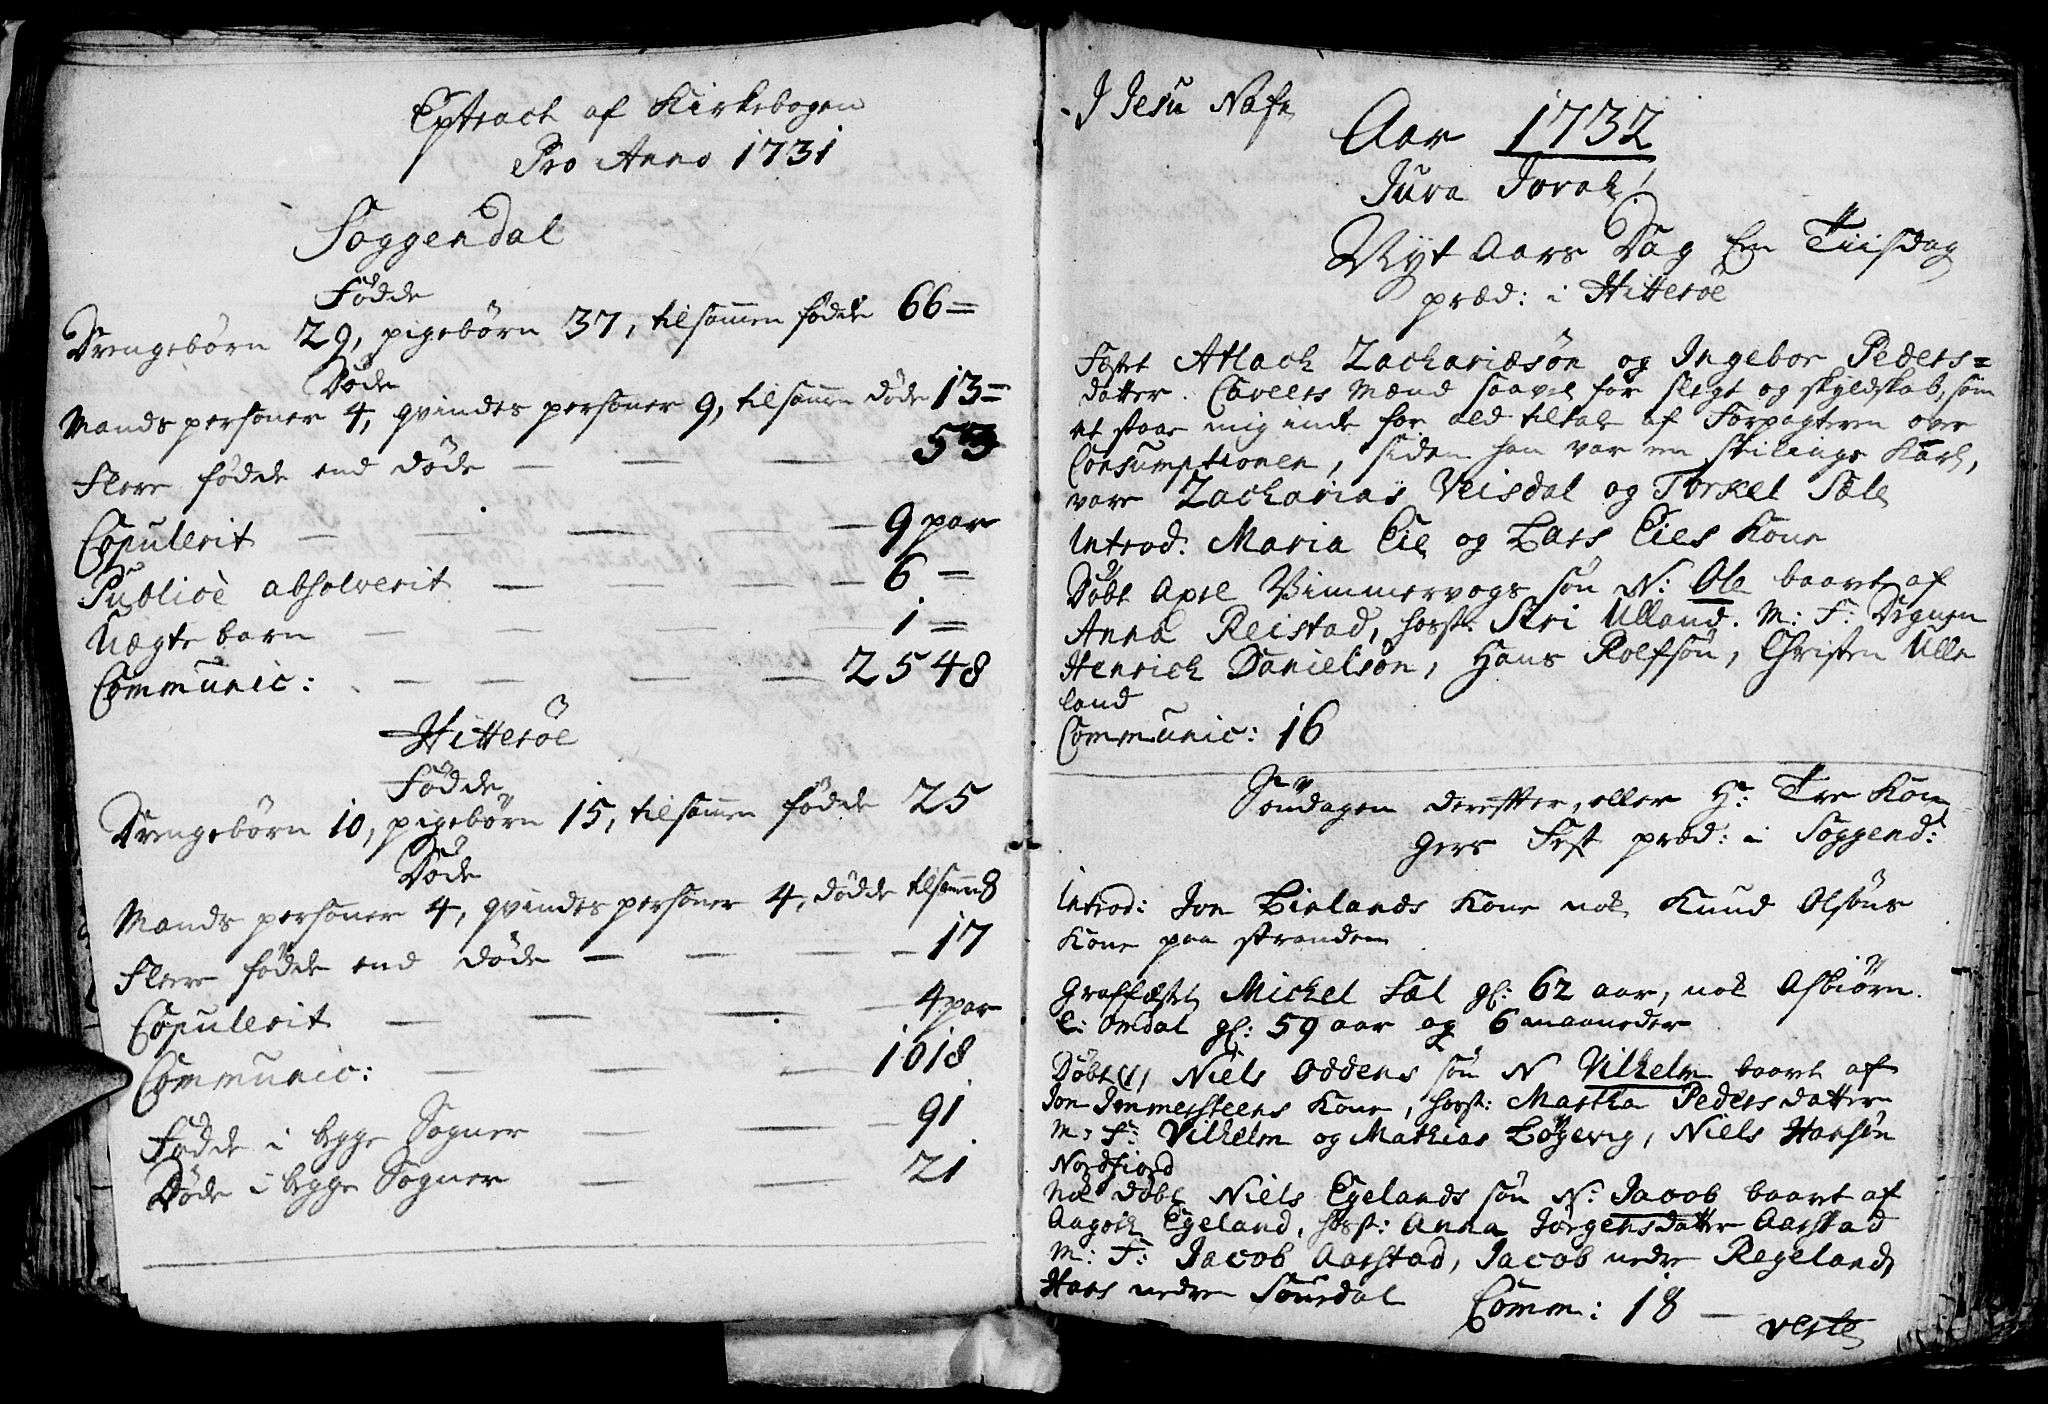 Extract af Kirkebogen
Pro Anno 1731
Soggendal
Födde
Drengebörn 29, pigebörn 37, tilsamen födde 66 =
Döde
Mands personer 4, qvindes personer 9, tilsamen döde 13 =
Flere födde end döde — — — 53
Copulerit — — — — 9 par
Publicè absolverit — — — 6 =
Uægte barn — — — — 1 =
Communic: — — — — 2548
Hitteröe
Födde
Drengebörn 10, pigebörn 15, tilsamen födde 25
Döde
Mands personer 4, qvindes personer 4, dödde tilsamen 8
Flere födde end döde — — — 17
Copulerit — — — — 4 par
Communic: — — — 1018
Födde i begge Sogner — — — 91
Döde i begge Sogner — — 21
I Jesu Nafn
Aar 1732
Jura
Nyt Aars Dag En Tiisdag
præd: i Hitteröe
Fæstet Atlach Zachariæsön og Ingebor Peders=
datter. Caveers Mænd saavel for slegt og skyldskab, som
at staae mig inde for ald tiltale af Forpagteren over
Consumptionen, siden han var en skilings Karl,
vare Zacharias Veisdal og Torkel Sæle
Introd: Maria Eie og Lars Eies Kone
Döbt Axel Vimmervogs sön N: Ole baaret af
Anna Reistad, hosst: Siri Ulland. M: F: Degnen
Henrich Danielsön, Hans Rolfsön, Christen Ulle
land
Communic: 16
Söndagen derefter, eller H: Tre Kon
gers Fest præd: i Soggend:
Introd: Jon Birlands Kone nok Knud Olsöns
Kone paa stranden
Graffæstet Michel Sæl gl: 62 aar, nok Asbiörn
E: Omdal gl: 59 aar og 6 maaneder
Döbt (1) Niels Oddens sön N Vilhelm baaret af
Jon Immersteens Kone, hosst: Martha Pedersdatter
M: F: Vilhelm og Mathias Bögevig, Niels Hansön
Nordfiord
Nok döbt Niels Egelands sön N: Jacob baaret af
Aagot Egeland, hosst: Anna Jörgensdatter Aarstad
M: F: Jacob Aarstad, Jacob nedre Regeland,
Hans nedre Tönedal Comm: 18 —
verte